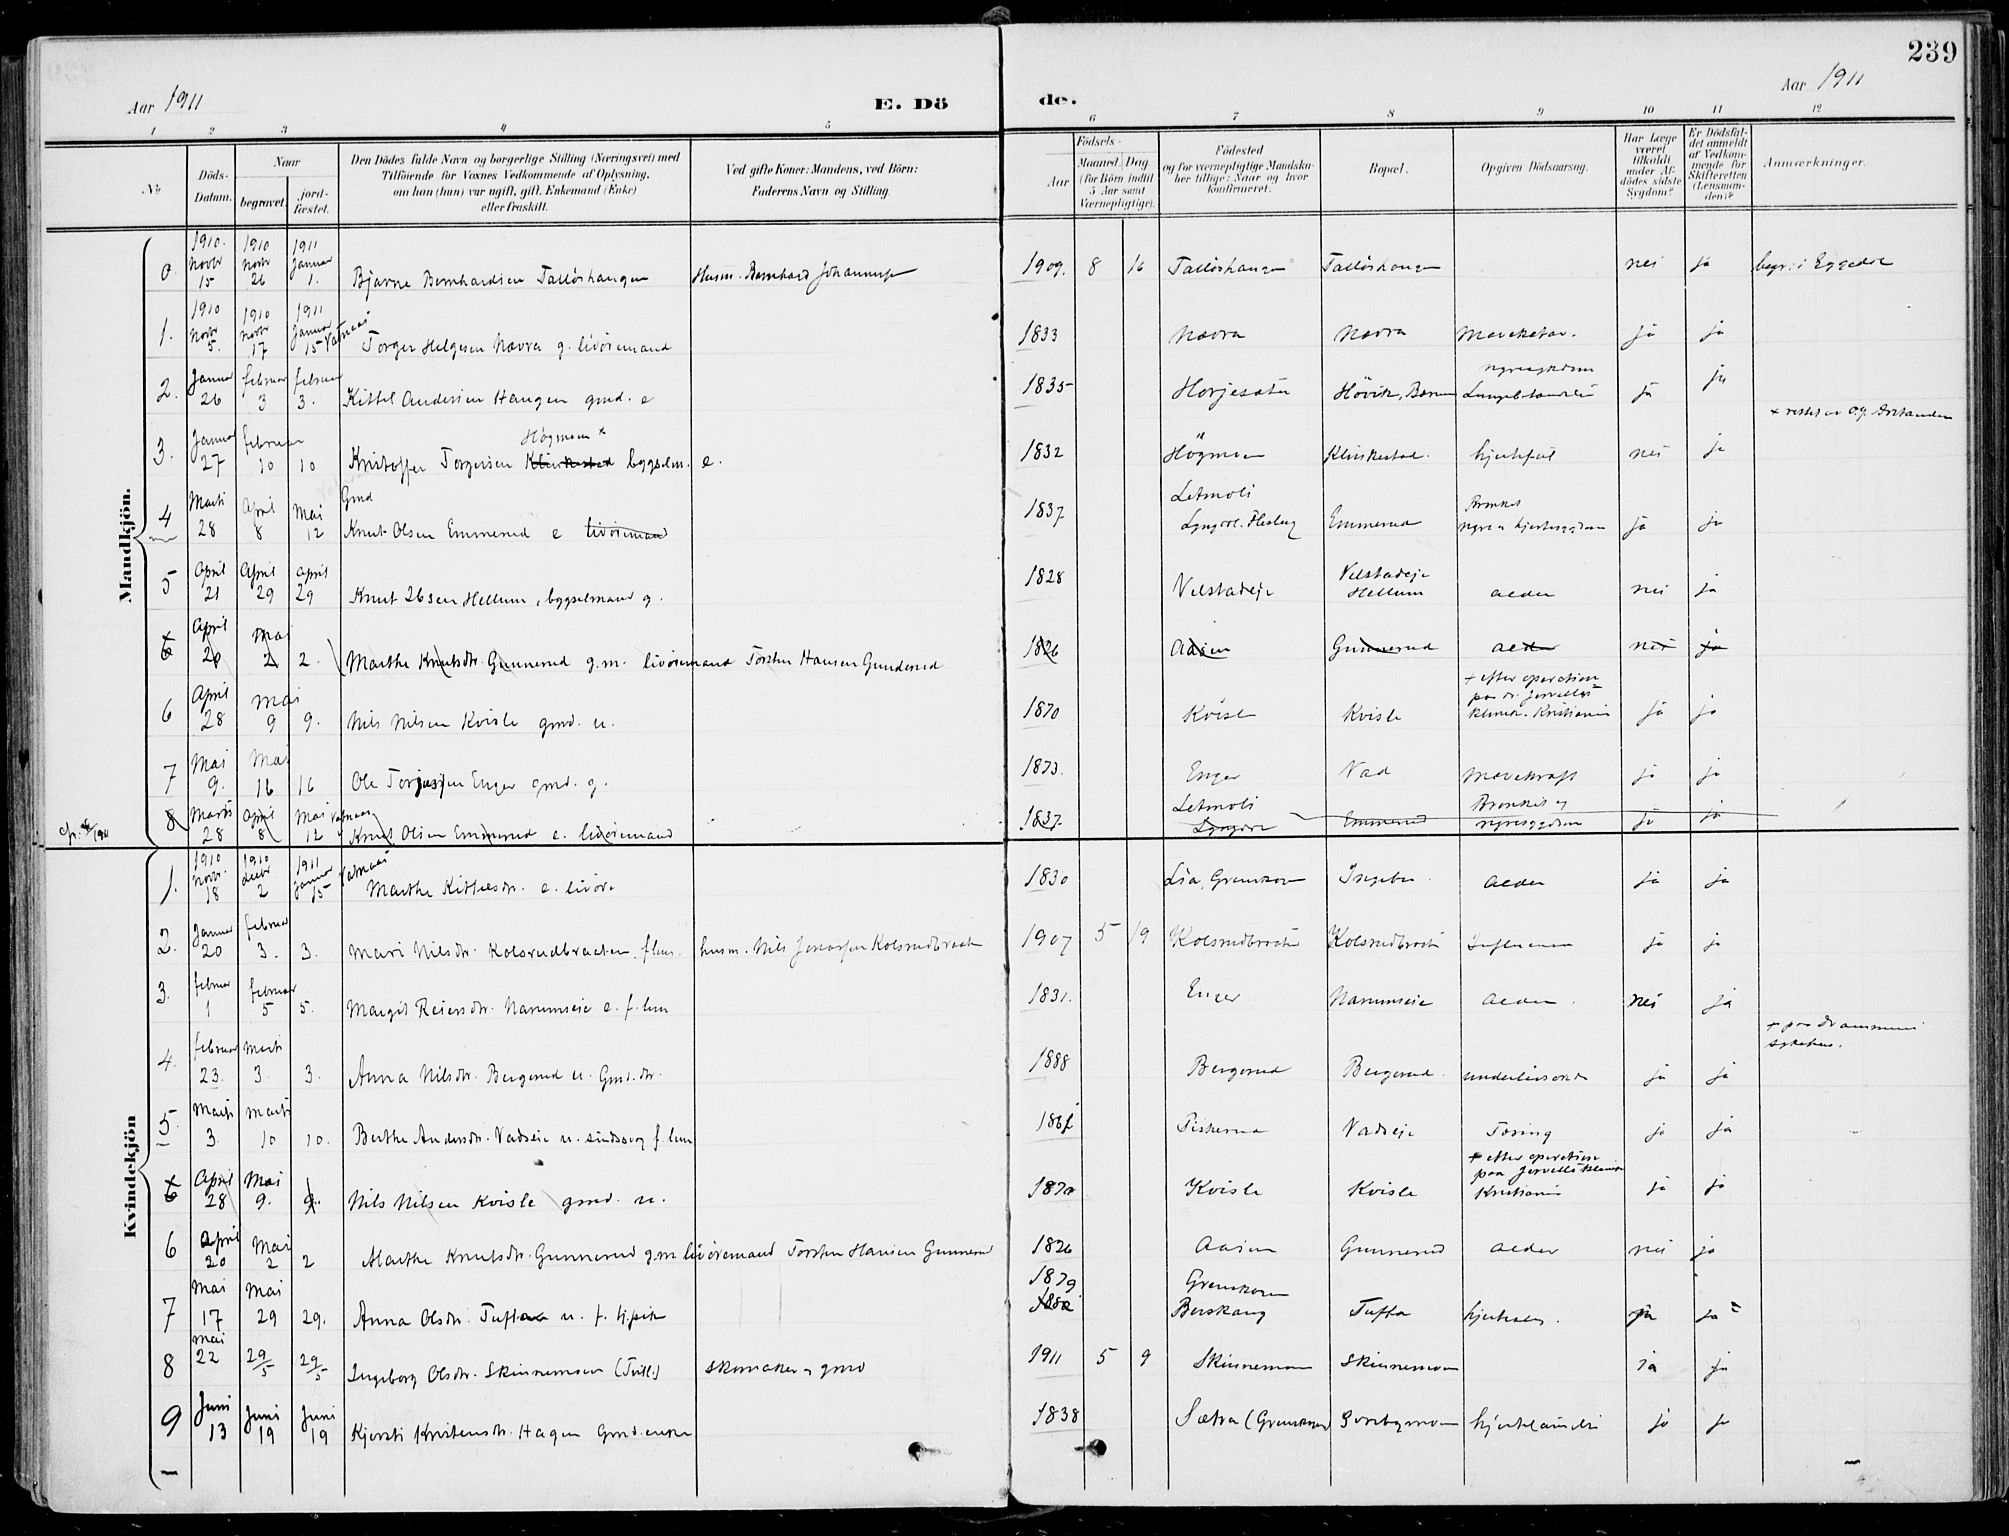 239
Aar 1911
E. Dö
de.
Aar 1911
1 2 3 4 5 6 7 8 9 10 11 12
No
Döds-Datum.
Naar
begravet.
jord-fæstet.
Den Dödes fulde Navn og borgerlige Stilling (Næringsvei) med
Tilföiende for Voxnes Vedkommende af Oplysning,
om han (hun) var ugift, gift, Enkemand (Enke)
eller fraskilt.
Ved gifte Koner: Mandens, ved Börn:
Faderens Navn og Stilling.
Födsels-
Aar
Maaned. Dag.
(for Börn indtil
5 Aar samt
Værnepligtige).
Födested
og for værnepligtige Mandska-
ber tillige: Naar og hvor
konfirmeret.
Bopæl.
Opgiven Dödsaarsag.
Har Læge
været
tilkaldt
under Af-
dödes sidste
Sygdom?
Er Dödsfal-
det anmeldt
af Vedkom-
mende for
Skifteretten
(Lensman-
den)?
Anmærkninger.
Mandkjön.
0. 1910. Novbr 15 1910 Novbr 26 1911 Januar 1. Bjarne Bernhardsen Tallöshaugen Husm. Bernhard Johannesen 1909. 8 16 Tallöshaugen Tallöshaugen nei ja begr. i Eggedal
1. 1910 Novbr 5. 1910 Novbr 17 1911 Januar 15 Torger Helgesen Navra g. livöremand 1833 Navra Navra Mavekatar. ja ja
2. Januar 26 februar 3 februar 3. Kittel Andersen Haugen gmd. e 1835 Horjesäter Hövik, Bærum ja ja
3. Januar 27 februar 10 10 Kristoffer Torgersen Klinkestad Högmoen x bygselm. e. 1832 Högmoen Klinkestad hjertefeil nei ja
4 Marts 28 April 8 Mai 12 Gmd Knut Olsen Emmerud e livöremand 1837 Letmoli Lyngdal. Flesberg Emmerud nyre og hjertesygdom ja ja
5 April 21 April 29 april 29 Knut Ibsen Hellum, bygselmand g. 1828 Velstadeje Velstadeje Hellum alder nei ja
6 April 20 Mai 2 2. Marthe Knutsdtr. Gunnerud g.m. livöremand Torsten Hansen Gunderud 1826 Aasen Gunnerud alder nei ja
6 April 28 Mai 9 9. Nils Nilsen Kvisle gmd. u. 1870 Kvisle Kvisle + efter operation paa dr. Jervells klinik. Kristiania ja ja
7 Mai 9. Mai 16 16 Ole Torjussen Enger gmd. g. 1873. Enger Vad Mavekræft ja ja
8 Marts 28 April 8 Mai 12 Knut Olsen Emmerud e. livöremand 1837 Letmoli Lyngdal Emmerud Bronkit og nyresygdom ja ja
Kvindekjön
1. 1910 Novbr. 18 1910 decbr 2 1911 Januar 15 Marthe Kittelsdtr. e. livöre 1830 Lia, Grenskoven alder ja ja
2. Januar 20 februar 3. 3. Mari Nilsdtr. Kolsrudbraaten, flem. husm. Nils Kolsrudbraaten 1907 5 19 Kolsrudbraaten Kolsrudbraaten Influensa ja ja
3. februar 1 februar 5 5. Margit Reiersdtr. Narumseie e. f. lem 1831. Enger Narumseie Alder. nei ja
4. februar 23. Marts 3. 3. Anna Nilsdtr. Bergerud u. Gmd. dtr. 1888 Bergerud Bergerud. underlivsonde ja ja + paa drammens sykehus.
5. Marts 3. Marts 10 10. Berthe Andersdtr. Vadseie u. sindssvag f. lem Vadseje Tæring ja ja
6 April 28 Mai 9. 9. Nils Nilsen Kvisle gmd. u. 1870 Kvisle Kvisle + efter operation paa Jervells klinik Kristiania ja ja
6 April 20 Mai 2 2 Marthe Knutsdtr. Gunnerud g.m. livöremand Torsten Hansen Gunnerud 1826 Aasen Gunnerud alder nei ja
7 Mai 17 Mai 29 29. Anna Olsdtr. Tufta u. f. 1879 Grenskoven Berskaug Tufta ja ja
8 Mai 22 29/5 29/5 Ingeborg Olsdtr. Skinnemoen (Tvill.) skomaker og gmd 1911 5 9 Skinnemoen Skinnemoen ja ja
9 Juni 13 Juni 19 Juni 19 Kjersti Kristensdtr. Hagen Gmd. enke 1838 Sætra (Grenskoven) ja ja